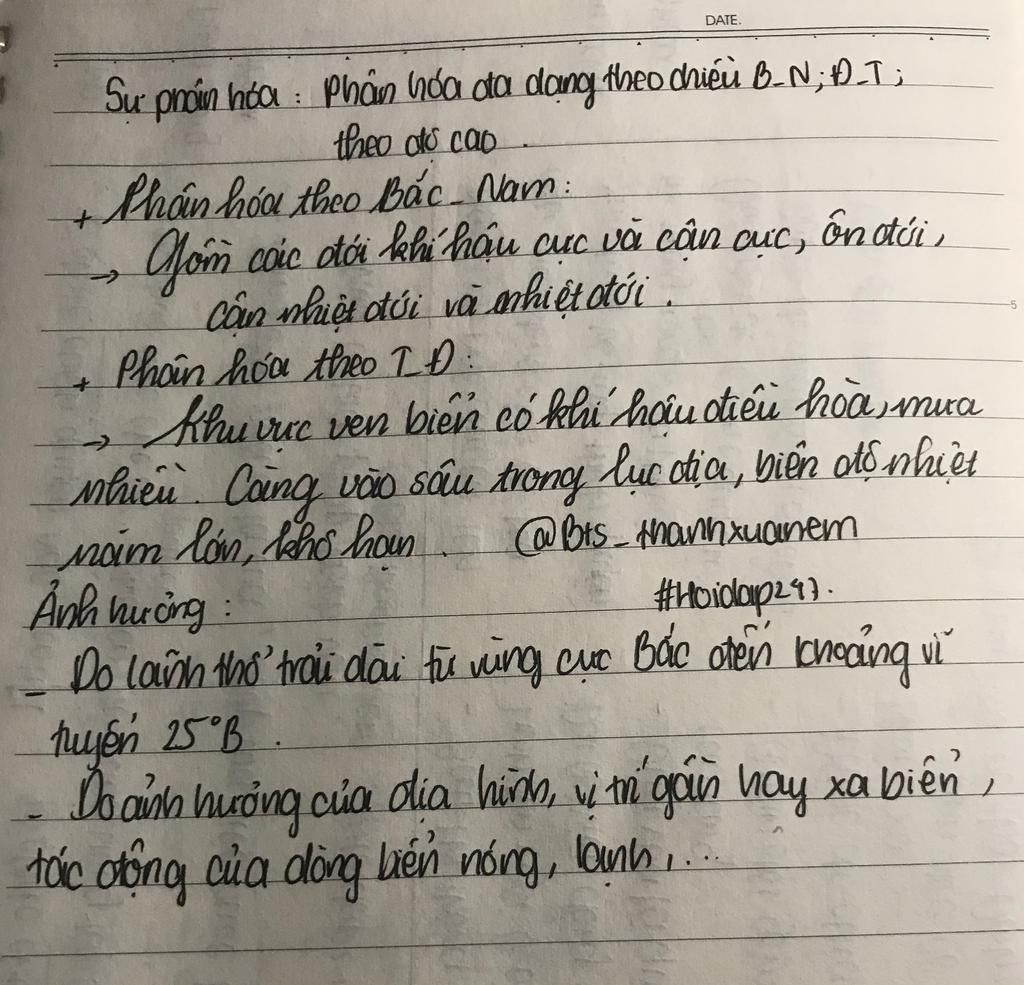 DATE.
Sự phân hóa : Phân hóa đa dạng theo chiều B_N; Đ_T;
theo độ cao .
+ Phân hóa theo Bắc_Nam:
→ Gồm các đới khí hậu cực và cận cực, ôn đới,
cận nhiệt đới và nhiệt đới .
5
+ Phân hóa theo T_Đ :
→ Khu vực ven biển có khí hậu điều hòa, mưa
nhiều. Càng vào sâu trong lục địa, biên độ nhiệt
năm lớn, khô hạn . @Bts_thanhxuanem
Ảnh hưởng : #Hoidap247.
_ Do lãnh thổ trải dài từ vùng cực Bắc đến khoảng vĩ
tuyến 25°B .
_ Do ảnh hưởng của địa hình, vị trí gần hay xa biển,
tác động của dòng biển nóng, lạnh,...